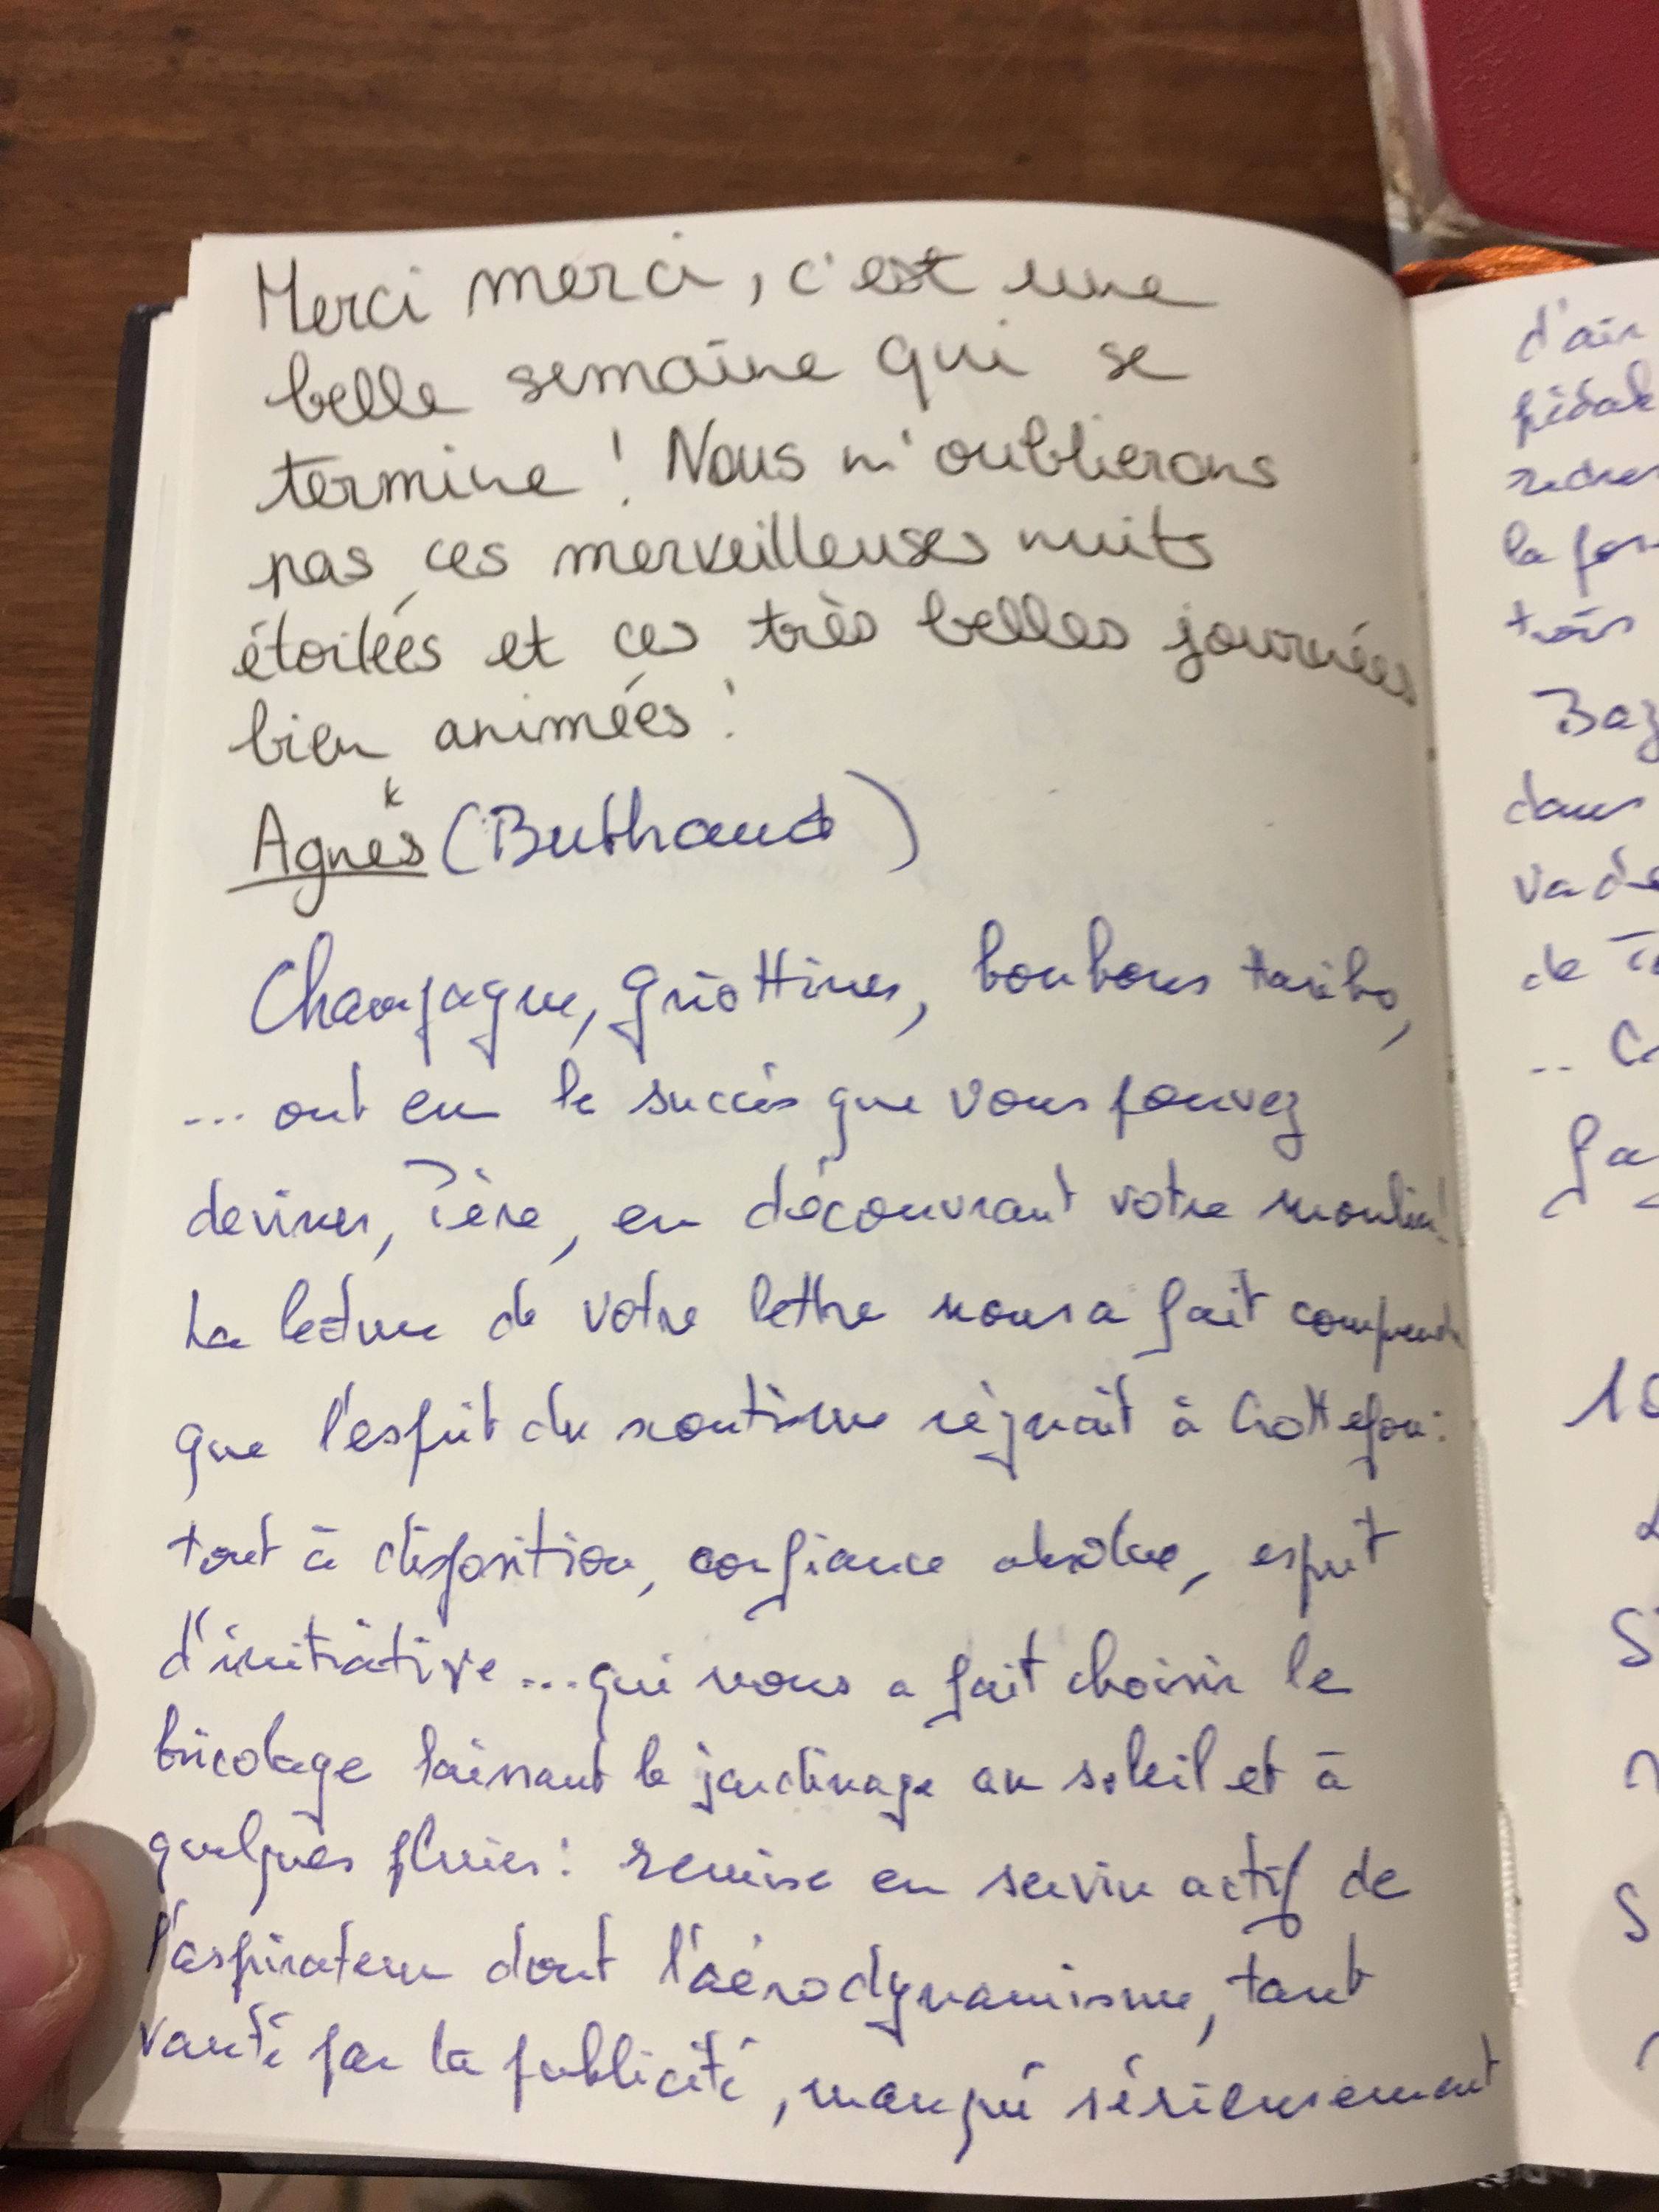 Merci merci, c'est une
belle semaine qui se
termine ! Nous n'oublierons
pas ces merveilleuses nuits
étoilées et ces très belles journées
bien animées !
Agnès (Buthaud)
Champagne, griottines, bonbons Haribo,
... ont eu le succès que vous pouvez
deviner, en découvrant votre moulin !
La lecture de votre lettre nous a fait comprendre
que l'esprit du scoutisme régnait à :
tout à disposition, confiance absolue, esprit
d'initiative... qui nous a fait choisir le
bricolage laissant le jardinage au soleil et à
quelques pluies : remise en service actif de
l'aspirateur dont l'aérodynamisme, tant
vanté par la publicité, manqué sérieusement
d'air
la
dans
de